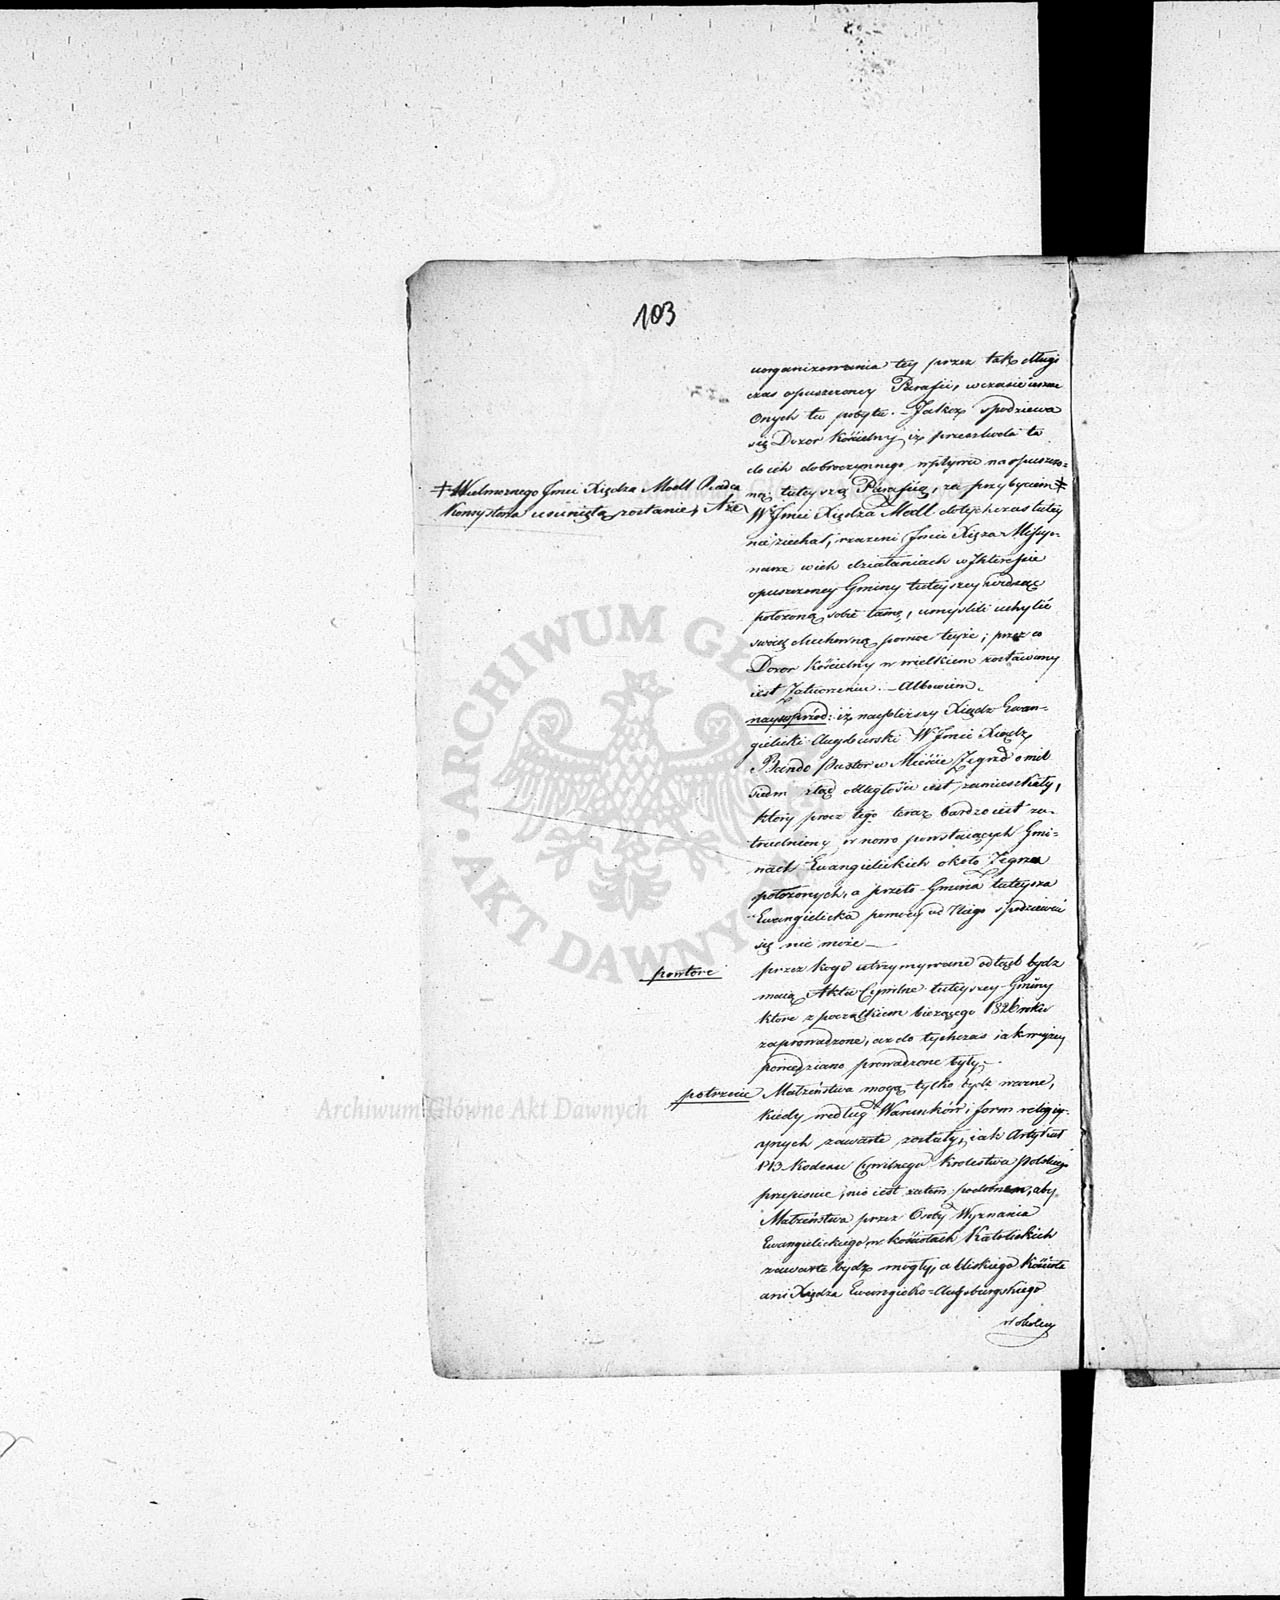 103
uorganizowania tey przez tak długi
czas opuszczoney Parafii, w czasie
Onych tu pobytu. – Jakoż spodziewa
się Dozor Kościelny iż przeszkoda ta
do ich dobroczynnego wpływu na opuszczo-
ną tuteyszą Parafiią, za przybyciem ‡
‡ Wielmożnego Jmci Xiędza Modl Radca
Konsystorza usuniętą zostanie, Nże
W Jmci Xiędza Modl dotychczas tutey
nie ziechał, wrazeni Jmci Xięza Missyo-
narze w ich działaniach w Interessie
opuszczoney Gminy tuteyszey widząc
położoną sobie tamę, umyslili uchylić
swoią duchowną pomoc teyże; przez co
Dozor Kościelny w wielkiem zostawiony
iest Zatrwożeniu. – Albowiem.
nayprzód: iż naybliższy Xiądz Ewan-
gielicki Augsburski W Jmci Xiądz
Bando Pastor w Mieście Zegrz o mil
siedm ztąd odległości iest zamieszkały,
który procz tego teraz bardzo iest za-
trudniony w nowo powstaiących Gmi-
nach Ewangielickich około Zegrza
położonych, a przeto Gmina tuteysza
Ewangielicka pomocy od Niego spodziewać
się nie może —
powtóre
przez kogo utrzymywane odtąd bydz
maią Akta Cywilne tuteyszey Gminy
które z początkiem bieżącego 1826 roku
zaprowadzone, aż do tychczas iak wyżey
powiedziano prowadzone były. –
potrzecie
Małżeństwa mogą tylko bydź ważne,
kiedy według Warunków i form religiy-
nych zawarte zostały, iak Artykuł
113 Kodexu Cywilnego Krolestwa Polskiego
przepisuie, nie iest zatem podobnem, aby
Małżeństwa przez Osoby Wyznania
Ewangielickiego w kościołach Katolickich
zawarte bydz mogły, a bliskiego Kościoła
ani Xiędza Ewangielicko-Augsburgskiego
w okolicy
ARCHIWUM GŁÓWNE AKT DAWNYCH
Archiwum Główne Akt Dawnych